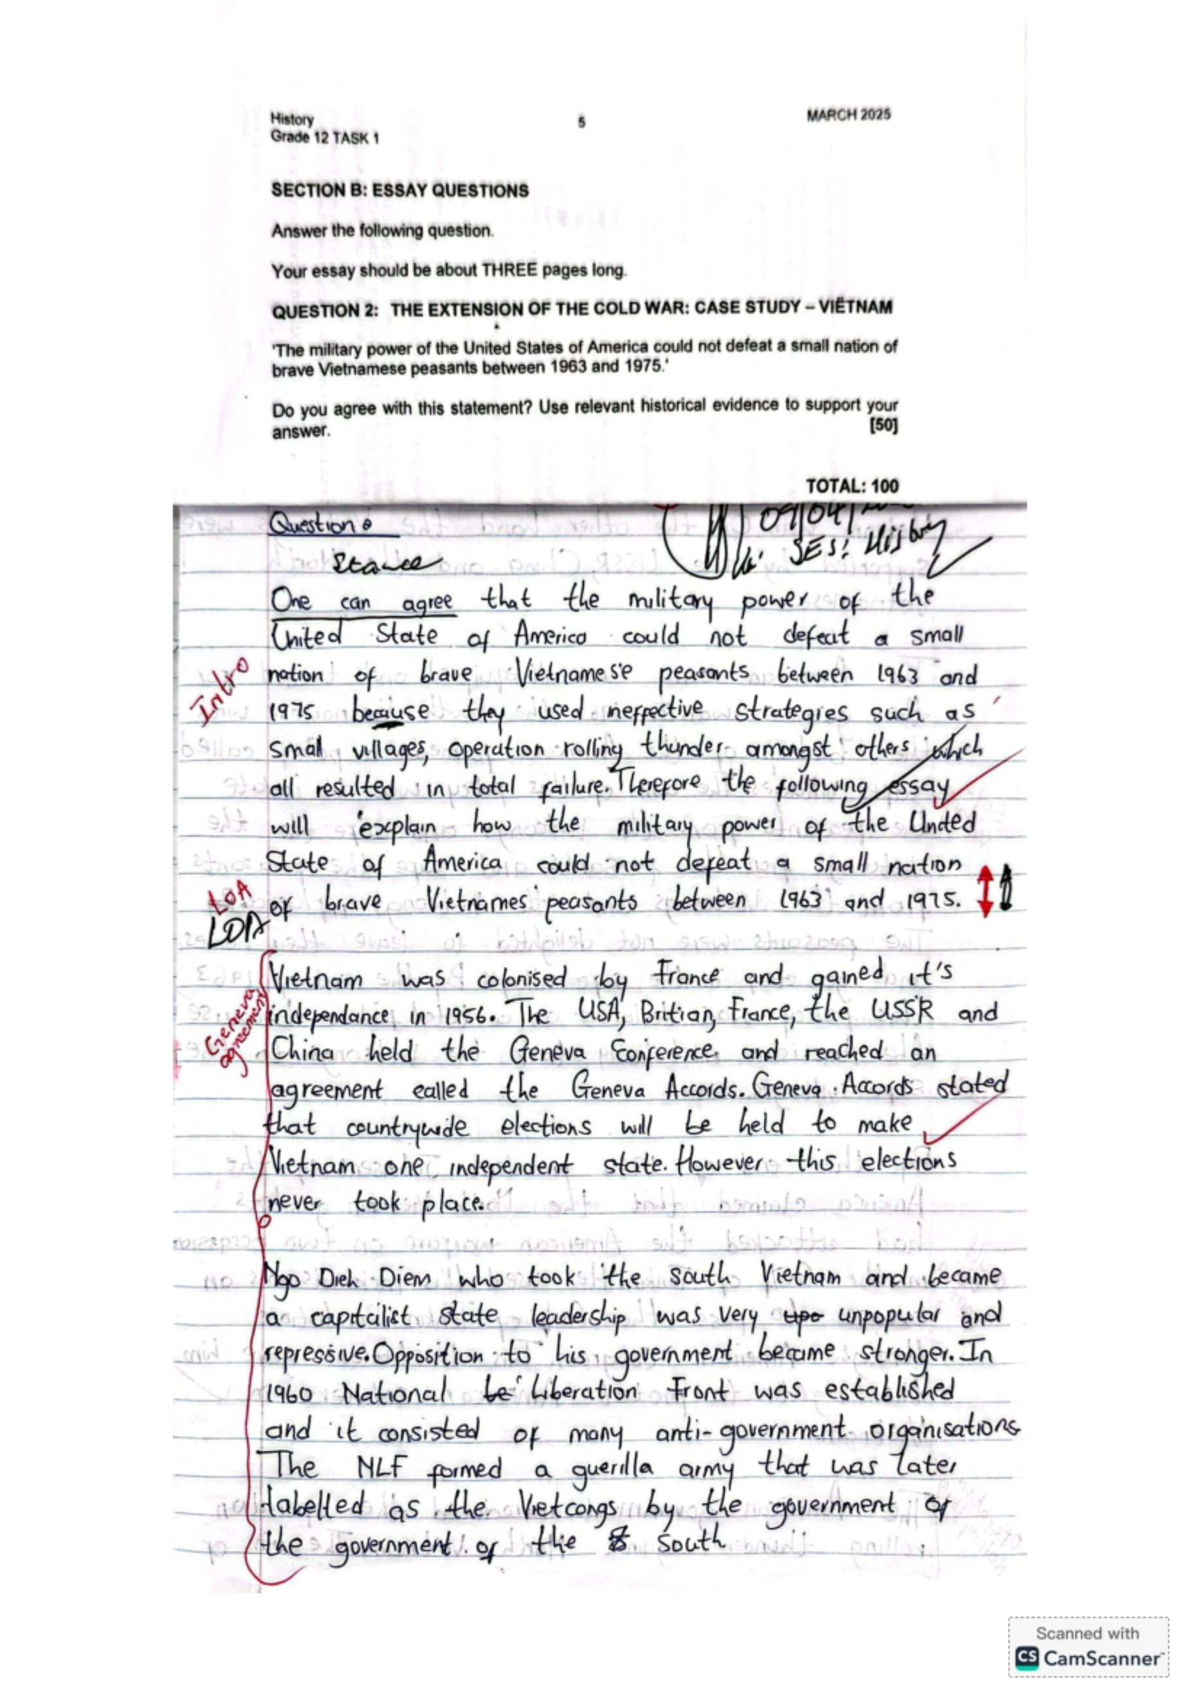 History
Grade 12 TASK 1
5
MARCH 2025
SECTION B: ESSAY QUESTIONS
Answer the following question.
Your essay should be about THREE pages long.
QUESTION 2: THE EXTENSION OF THE COLD WAR: CASE STUDY – VIETNAM
'The military power of the United States of America could not defeat a small nation of
brave Vietnamese peasants between 1963 and 1975.'
Do you agree with this statement? Use relevant historical evidence to support your
answer. [50]
TOTAL: 100
Question
09/04/
SES: History
Stance
One can agree that the military power of the
United State of America could not defeat a small
nation of brave Vietnamese peasants between 1963 and
Intro
1975 because they used ineffective strategies such as
small villages, operation rolling thunder amongst others which
all resulted in total failure. Therefore the following essay
will explain how the military power of the United
State of America could not defeat a small nation
LOA
of brave Vietnames peasants between 1963 and 1975.
LOA
Vietnam was colonised by France and gained it's
independance in 1956. The USA, Britian, France, the USSR and
Geneva
agreement
China held the Geneva Conference and reached an
agreement called the Geneva Accords. Geneva Accords stated
that countrywide elections will be held to make
Vietnam one independent state. However this elections
never took place.
Ngo Dieh Diem who took the south Vietnam and became
a capitalist state leadership was very upo unpopular and
repressive. Opposition to his government became stronger. In
1960 National le Liberation Front was established
and it consisted of many anti-government organisations
The NLF formed a guerilla army that was later
labelled as the Vietcongs by the government of
the government of the south
Scanned with
CS CamScanner